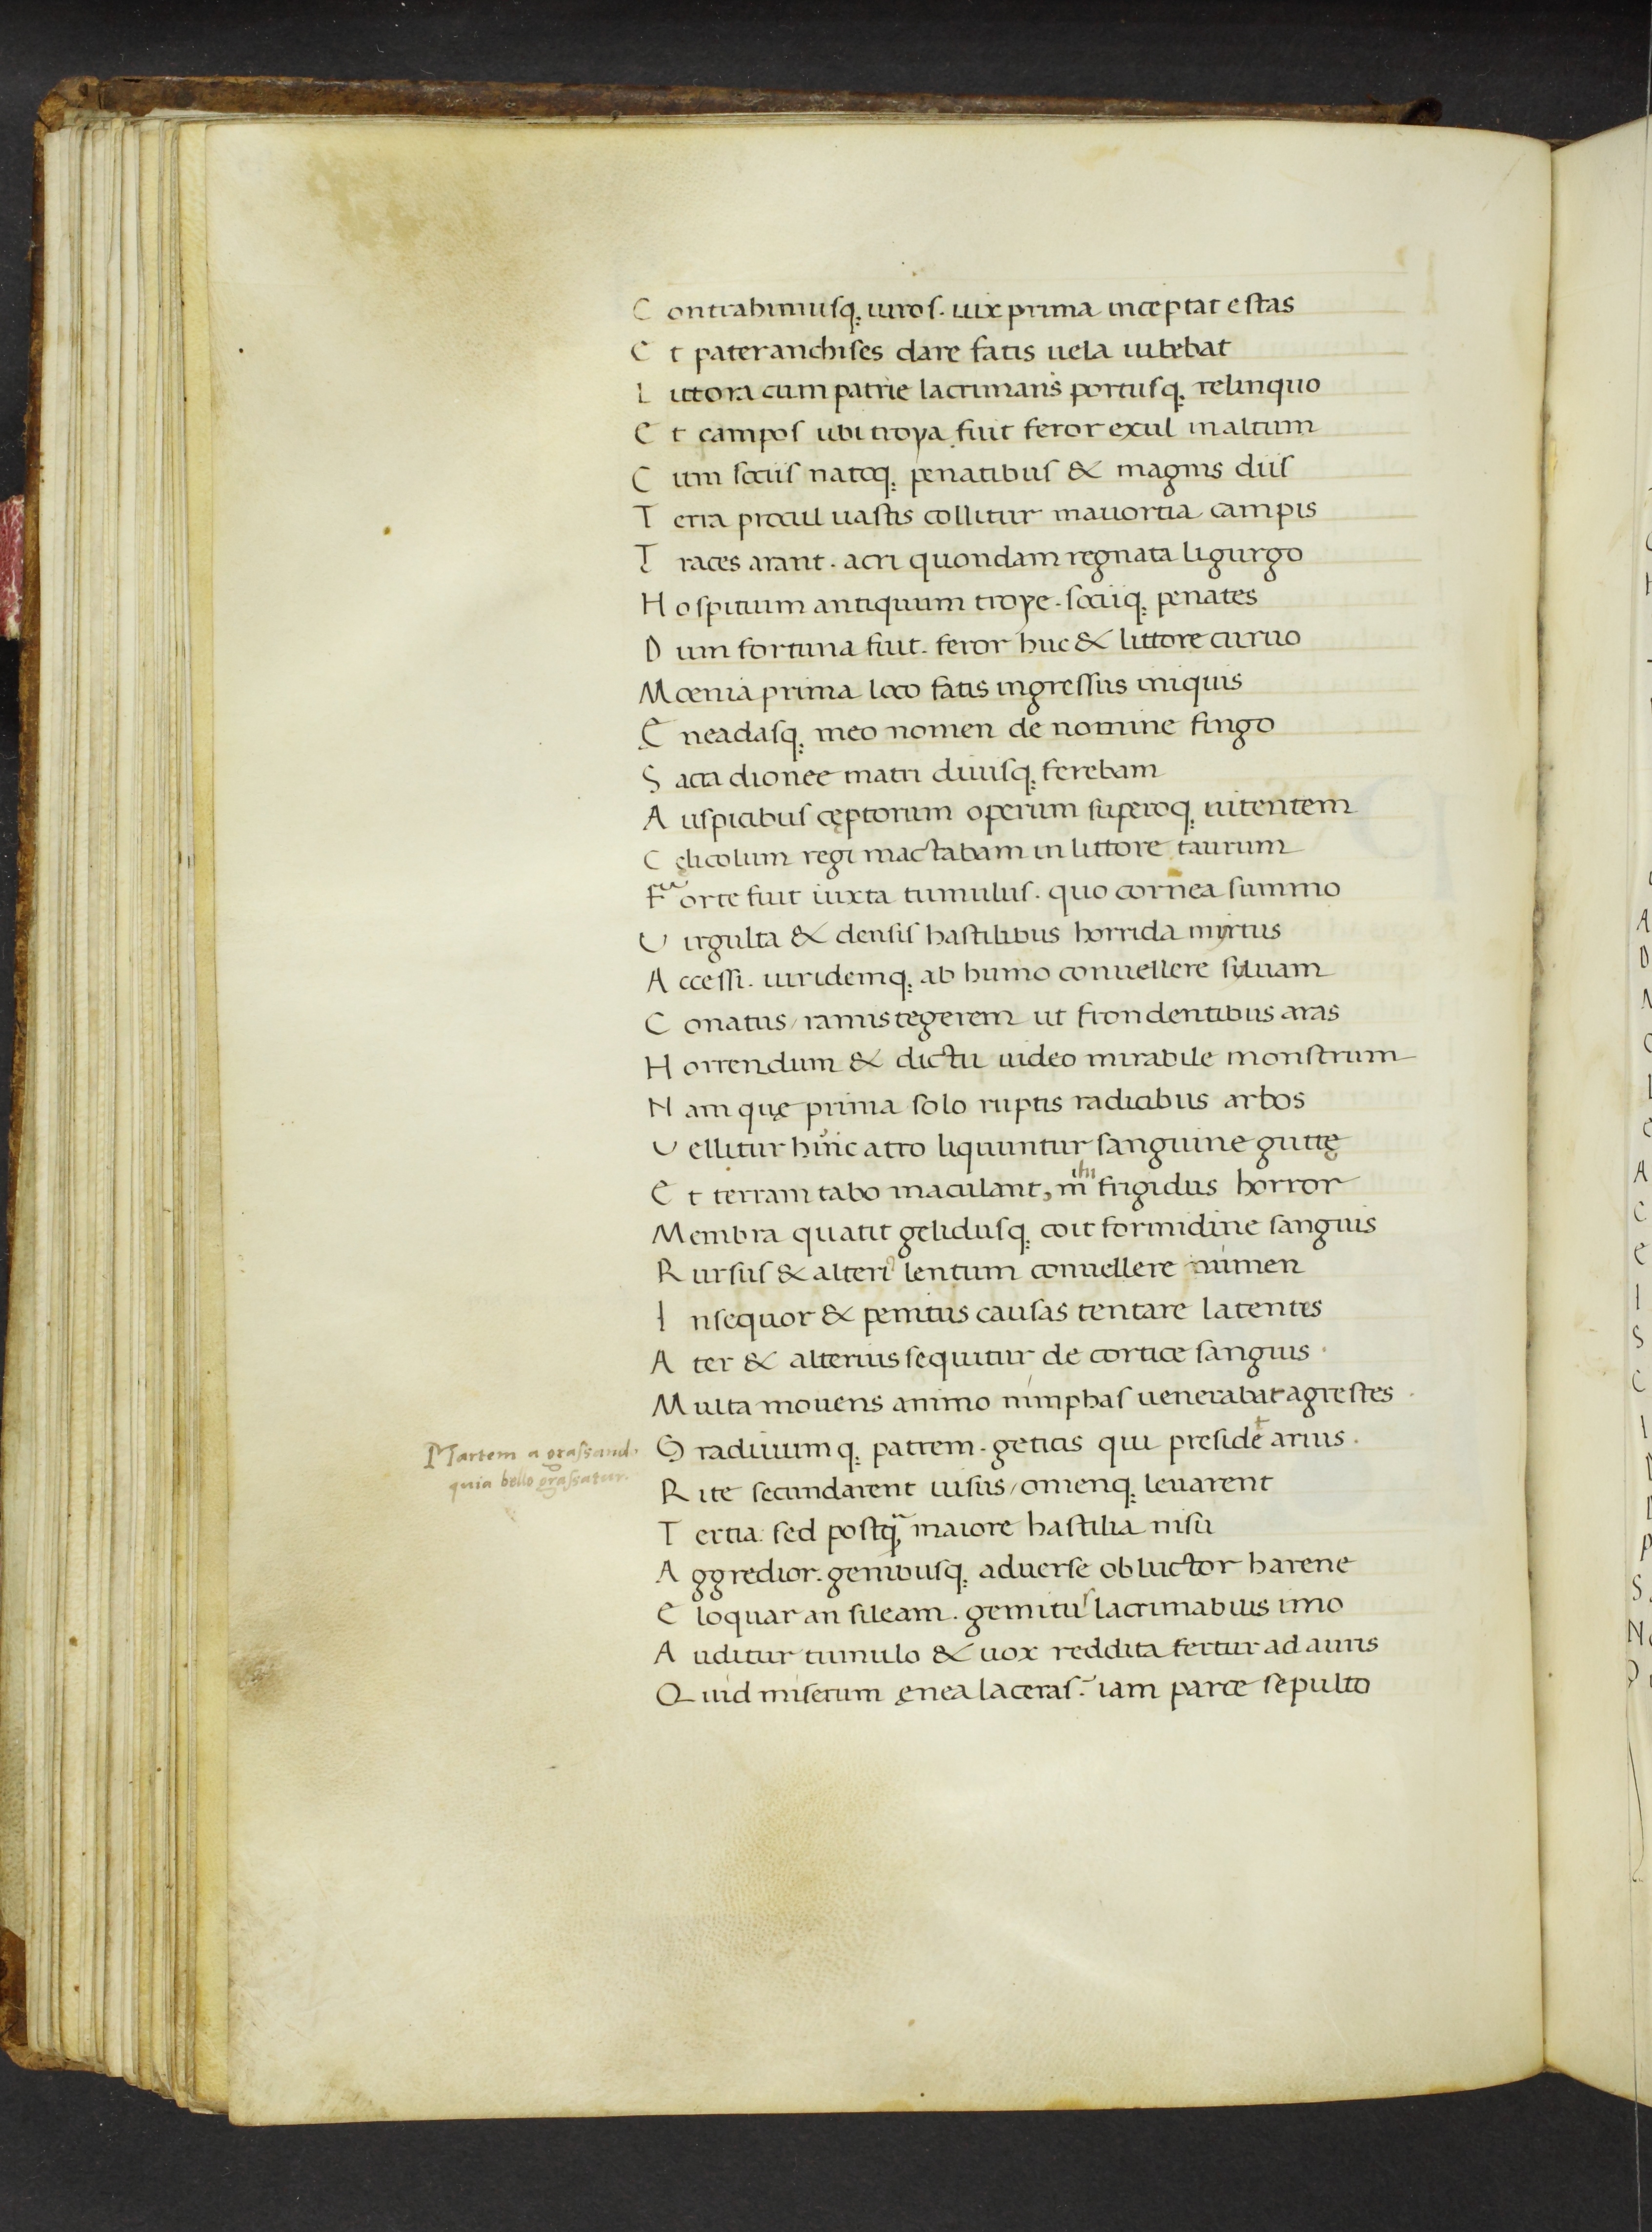 Contrahimusq; uiros. uix prima inceptat estas
Et pater anchises dare fatis uela iubebat
Littora cum patrie lacrimans portusq; relinquo
Et campos ubi troya fuit feror exul in altum
Cum sociis natoq; penatibus & magnis diis
Terra procul uastis collitur mauortia campis
Traces arant. acri quondam regnata ligurgo
Hospitium antiquum troye. sociiq; penates
Dum fortuna fuit. feror huc & littore curuo
Moenia prima loco fatis ingressus iniquis
Eneadasq; meo nomen de nomine fingo
Sacra dionee matri diuisq; ferebam
Auspicibus cęptorum operum superoq; nitentem
Cęlicolum regi mactabam in littore taurum
Forte fuit iuxta tumulus. quo cornea summo
Virgulta & densis hastilibus horrida myrtus
Accessi. uiridemq; ab humo conuellere syluam
Conatus / ramis tegerem ut frondentibus aras
Horrendum & dictu uideo mirabile monstrum
Nam quę prima solo ruptis radicibus arbos
Vellitur huic atro liquuntur sanguine guttę
Et terram tabo maculant, m̅ihi frigidus horror
Membra quatit gelidusq; coit formidine sanguis
Rursus & alteri⁹ lentum conuellere uimen
Insequor & penitus causas tentare latentes
Ater & alterius sequitur de cortice sanguis.
Multa mouens animo nimphas uenerabar agrestes.
Martem a grassand.
quia bello grassatur.
Gradiuumq; patrem. geticis qui presidet aruis.
Rite secundarent uisus / omenq; leuarent
Tertia. sed postq̃ maiore hastilia nisu
Aggredior. genibusq; aduerse obluctor harene
Eloquar an sileam. gemitus lacrimabilis imo
Auditur tumulo & uox reddita fertur ad auris
Quid miserum ęnea laceras? iam parce sepulto